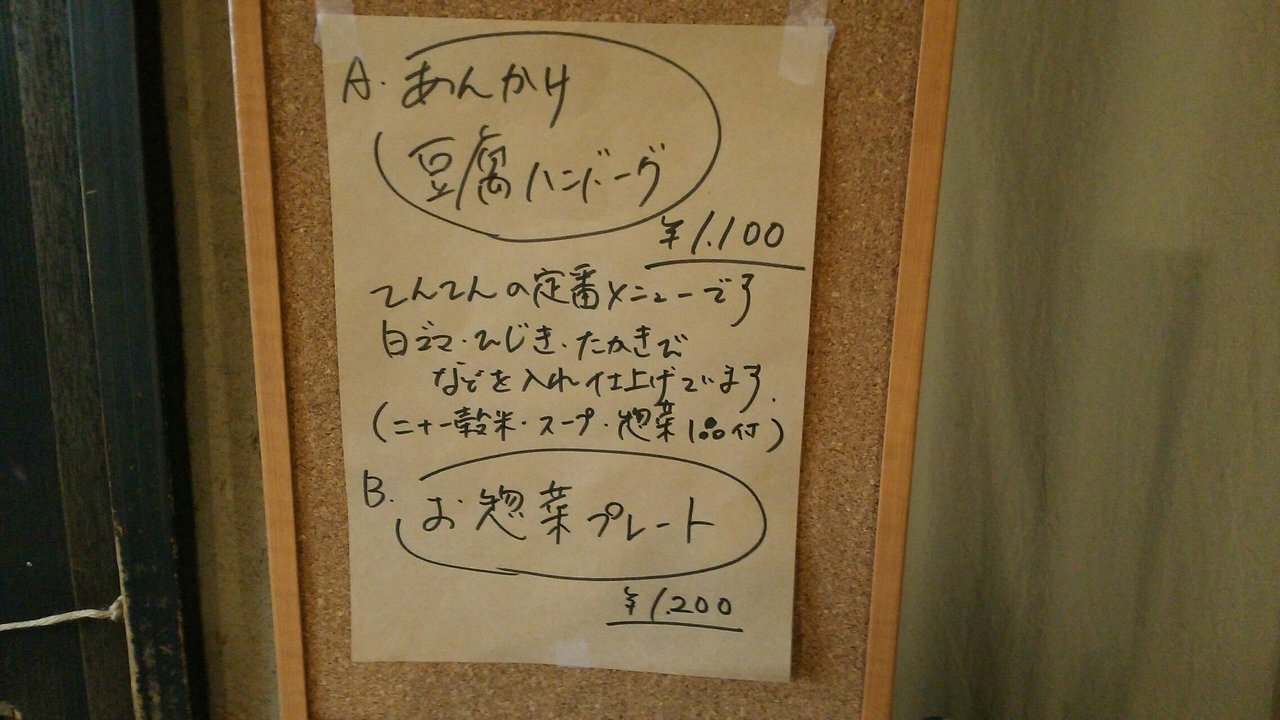 A. あんかけ
豆腐ハンバーグ
¥1.100
てんてんの定番メニューです
白ゴマ・ひじき・たかきび
などを入れ仕上げています.
(二十一穀米・スープ・惣菜1品付)
B.
お惣菜プレート
¥1.200